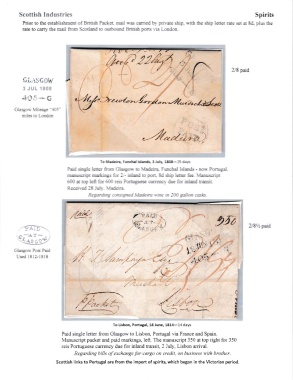 Scottish Industries Spirits
Prior to the establishment of British Packet, mail was carried by private ship, with the ship letter rate set at 8d, plus the
rate to carry the mail from Scotland to outbound British ports via London.
GLASGOW
3 JUL 1808
405-G
Glasgow Mileage "405"
miles to London
2/8 paid
Madeira
To Madeira, Funchal Islands, 3 July, 1808 – 25 days
Paid single letter from Glasgow to Madeira, Funchal Islands - now Portugal.
Manuscript markings for 2/- inland to port, 8d ship letter fee. Manuscript
600 at top left for 600 reis Portuguese currency due for inland transit.
Received 28 July, Madeira.
Regarding consigned Madeira wine in 200 gallon casks.
PAID
AT
GLASGOW
Glasgow Post Paid
Used 1812-1818
2/8½ paid
PAID
AT
GLASGOW
550
Lisbon
To Lisbon, Portugal, 18 June, 1814 – 14 days
Paid single letter from Glasgow to Lisbon, Portugal via France and Spain.
Manuscript packet and paid markings, left. The manuscript 550 at top right for 550
reis Portuguese currency due for inland transit, 2 July, Lisbon arrival.
Regarding bills of exchange for cargo on credit, no business with brother.
Scottish links to Portugal are from the import of spirits, which began in the Victorian period.